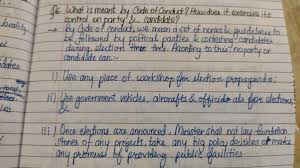 Q6. What is meant by Code of Conduct? How does it exercise its
control on party & candidate?
→ By Code of conduct, we mean a set of norms & guidelines to
be followed by political parties & contesting candidates
during election time. According to this no party or
candidate can :-
i) Use any place of worship for election propaganda;
ii) Use government vehicles, aircrafts & officials for elections,
&
iii) Once elections are announced, Minister shall not lay foundation
stones of any projects, take any big policy decisions or make
any promises of providing public facilities